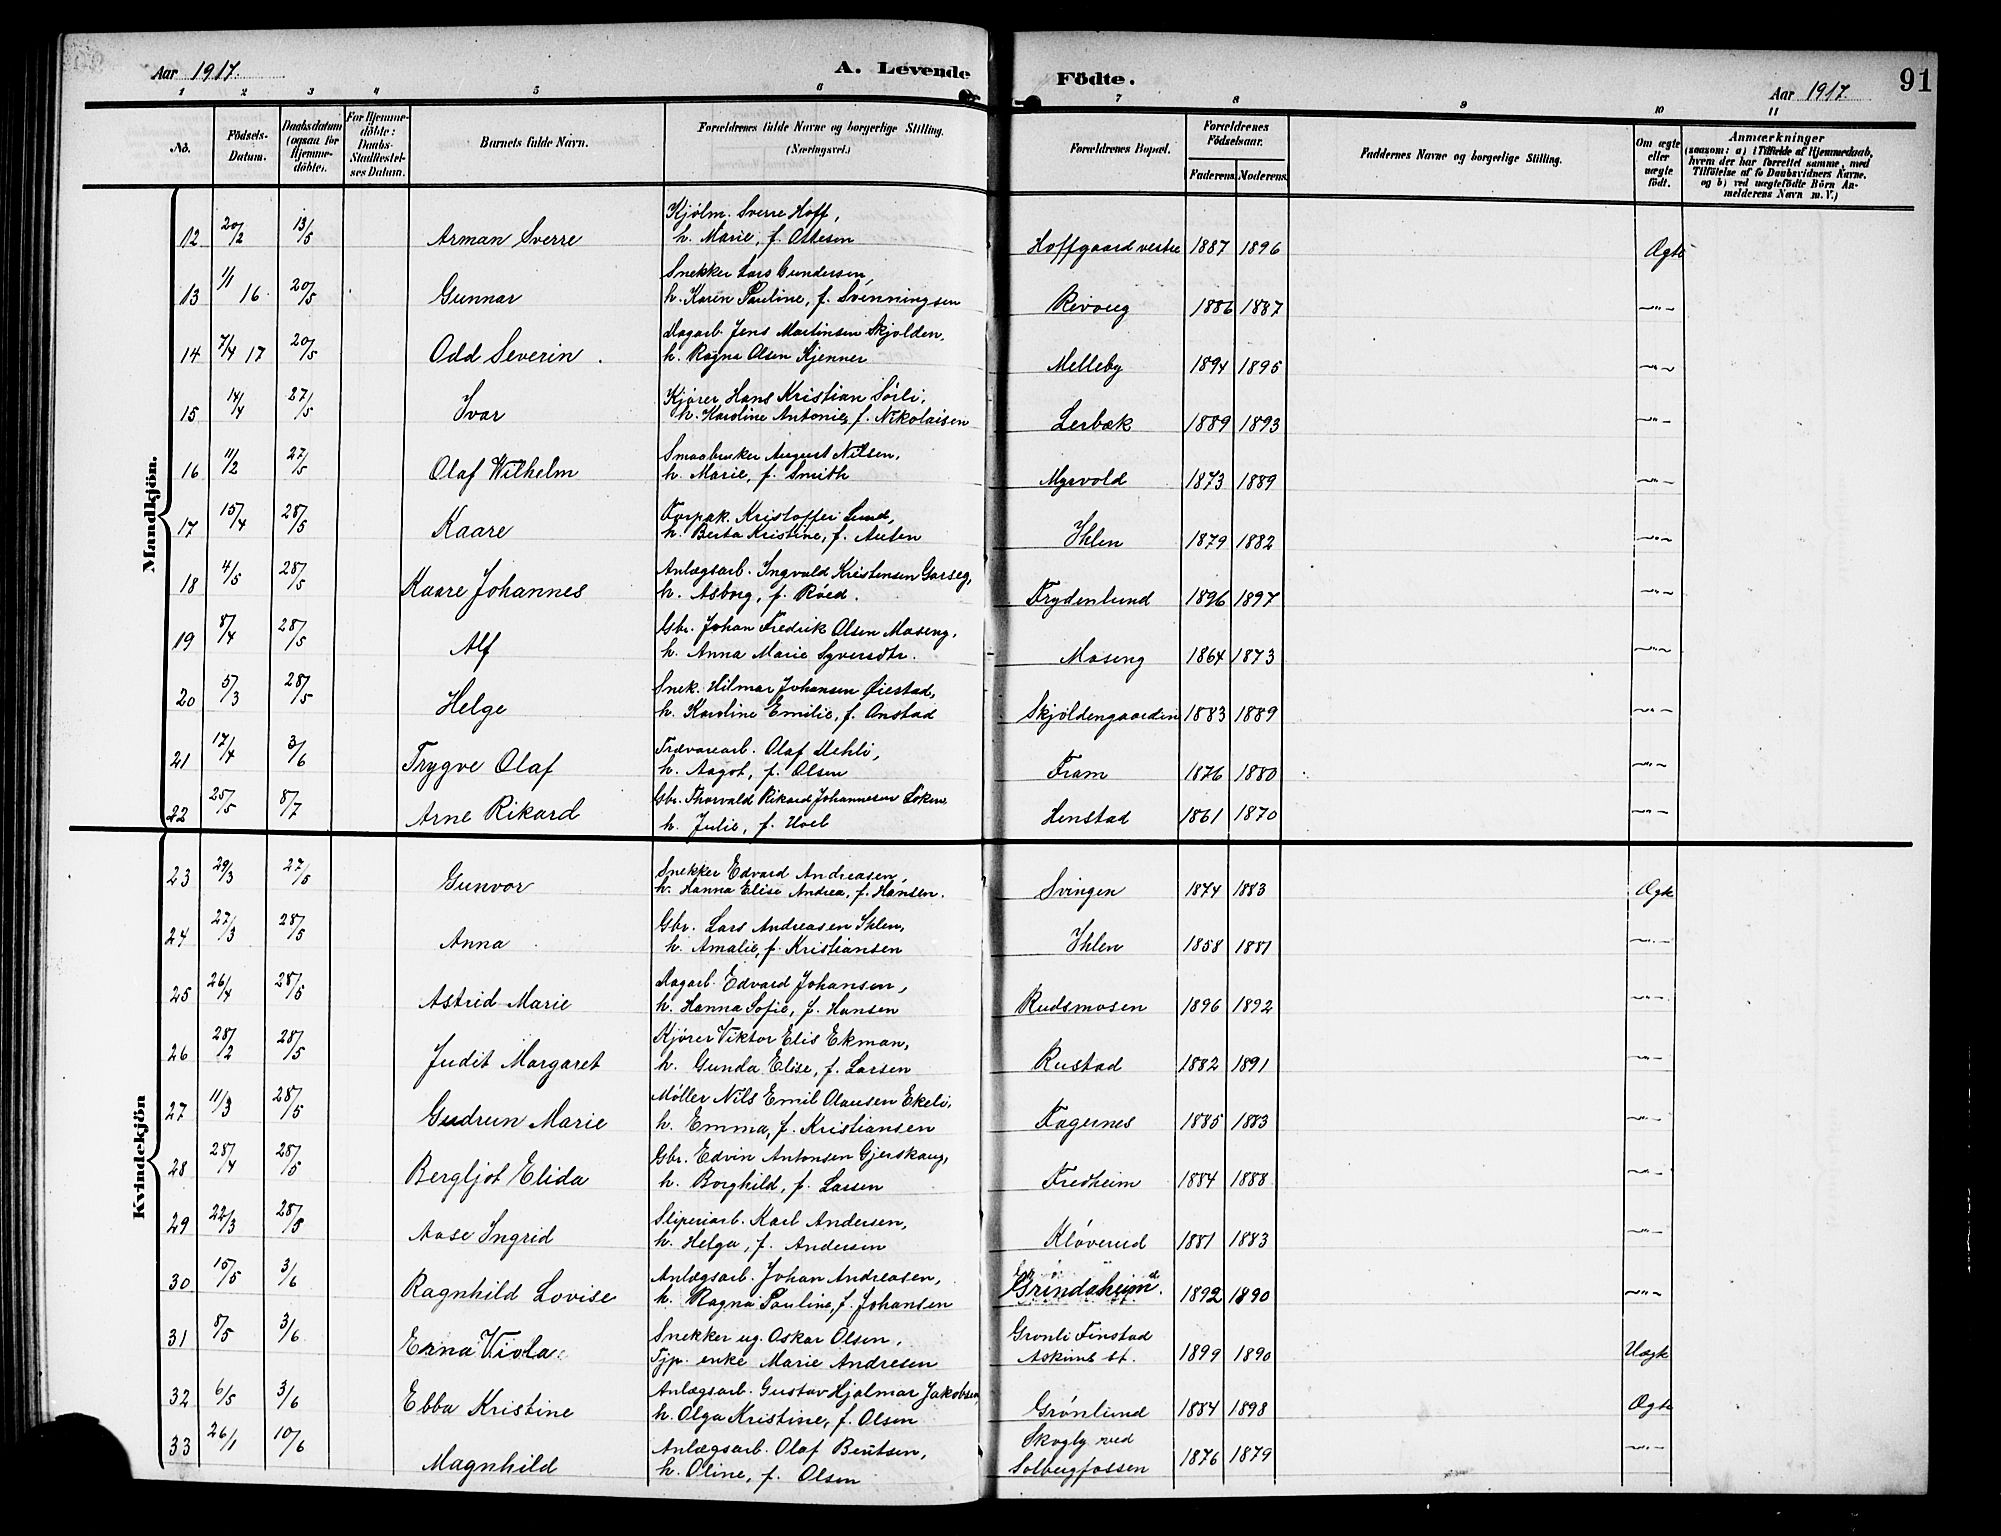 Aar 1917. A. Levende Födte. Aar 1917. 91
1 2 3 4 5 6 7 8 9 10 11
No. Födsels-Datum. Daabsdatum (ogsaa for Hjemmedöbte). For Hjemmedöbte: Daabs-Stadfæstelses Datum. Barnets fulde Navn. Forældrenes fulde Navne og borgerlige Stilling. (Næringsvei.) Forældrenes Bopæl. Forældrenes Födselsaar. Faderens. Moderens. Faddernes Navne og borgerlige Stilling. Om ægte eller uægte födt. Anmærkninger (saasom: a) i Tilfælde af Hjemmedaab, hvem der har forrettet samme, med Tilföielse af to Daabsvidners Navne, og b) ved uægtefödte Börn Anmelderens Navn m. V.)
Mandkjön.
12 20/2 13/5 Arman Sverre Kjølm. Sverre Hoff,
h. Marie, f. Ottesen Hoffgaard vestre 1887 1896 Ægte
13 1/1 16. 20/5 Gunnar Snekker Lars Gundersen,
h. Karen Pauline, f. Svenningsen Revoug 1886 1887 -"-
14 7/4 17 20/5 Odd Severin. Dagarb. Jens Martinsen Skjolden,
h. Ragna Olsen Kjenner Melleby 1894 1895 -"-
15 14/4 27/5 Ivar Kjører Hans Kristian Sørli,
h. Karoline Antonie, f. Nikolaisen Lerbæk 1889 1893 -"-
16 11/2 27/5 Olaf Wilhelm Smaabruker August Nilsen,
h. Marie, f. Smith Myrvold 1873 1889 -"-
17 15/4 28/5 Kaare Forpak. Kristoffer Lund,
h. Berta Kristine, f. Ihlen 1879 1882 -"-
18 4/5 28/5 Kaare Johannes Anlægsarb. Ingvald Kristensen Garseg,
h. Asborg, f. Røed. Frydenlund 1896 1897 -"-
19 8/4 28/5 Alf Gbr. Johan Fredrik Olsen Moseng,
h. Anna Marie Syversdtr. Moseng 1864 1873 -"-
20 5/3 28/5 Helge Snek. Hilmar Johansen Øiestad,
h. Karoline Emilie, f. Onstad Skjöldengaarden 1883 1889 -"-
21 17/4 3/6 Trygve Olaf Trævarearb. Olaf Mehli,
h. Aagot, f. Olsen Fram 1876 1880 -"-
22 25/5 8/7 Arne Rikard Gbr. Thorvald Rikard Johannesen Løken,
h. Julie, f. Hoel Henstad 1861 1870 -"-
Kvindekjön
23 29/3 27/5 Gunvor Snekker Edvard Andreasen,
h. Hanna Elise Andrea, f. Hansen. Svingen 1874 1883 Ægte
24 27/3 28/5 Anna Gbr. Lars Andreasen Ihlen,
h. Amalie, f. Kristiansen Ihlen 1858 1881 -"-
25 26/4 28/5 Astrid Marie Dagarb. Edvard Johansen,
h. Hanna Sofie, f. Hansen Rudsmosen 1896 1892 -"-
26 28/2 28/5 Judit Margaret Kjører Viktor Elis Ekman,
h. Gunda Elise, f. Larsen Rustad 1882 1891 -"-
27 11/3 28/5 Gudrun Marie Møller Nils Emil Olausen Ekeli,
h. Emma, f. Kristiansen Fagernes 1885 1883 -"-
28 28/4 28/5 Bergljot Elida Gbr. Edvin Antonsen Gjerskaug,
h. Borghild, f. Larsen Fredheim 1884 1888 -"-
29 22/3 28/5 Aase Ingrid Sliperiarb. Karl Andersen,
h. Helga, f. Andersen Kløverud 1881 1883 -"-
30 15/5 3/6 Ragnhild Lovise Anlægsarb. Johan Andreasen,
h. Ragna Pauline, f. Johansen 1892 1890 -"-
31 8/5 3/6 Erna Viola Snekker ug. Oskar Olsen,
Tjp. enke Marie Andresen Grønli Finstad
Askims st. 1899 1890 Uægte
32 6/5 3/6 Ebba Kristine Anlægsarb. Gustav Hjalmar Jakobsen,
h. Olga Kristine, f. Olsen Grønlund 1884 1898 Ægte
33 26/1 10/6 Magnhild Anlægsarb. Olaf Berntsen,
h. Oline, f. Olsen Skogly ved
Solbergfossen 1876 1879 -"-